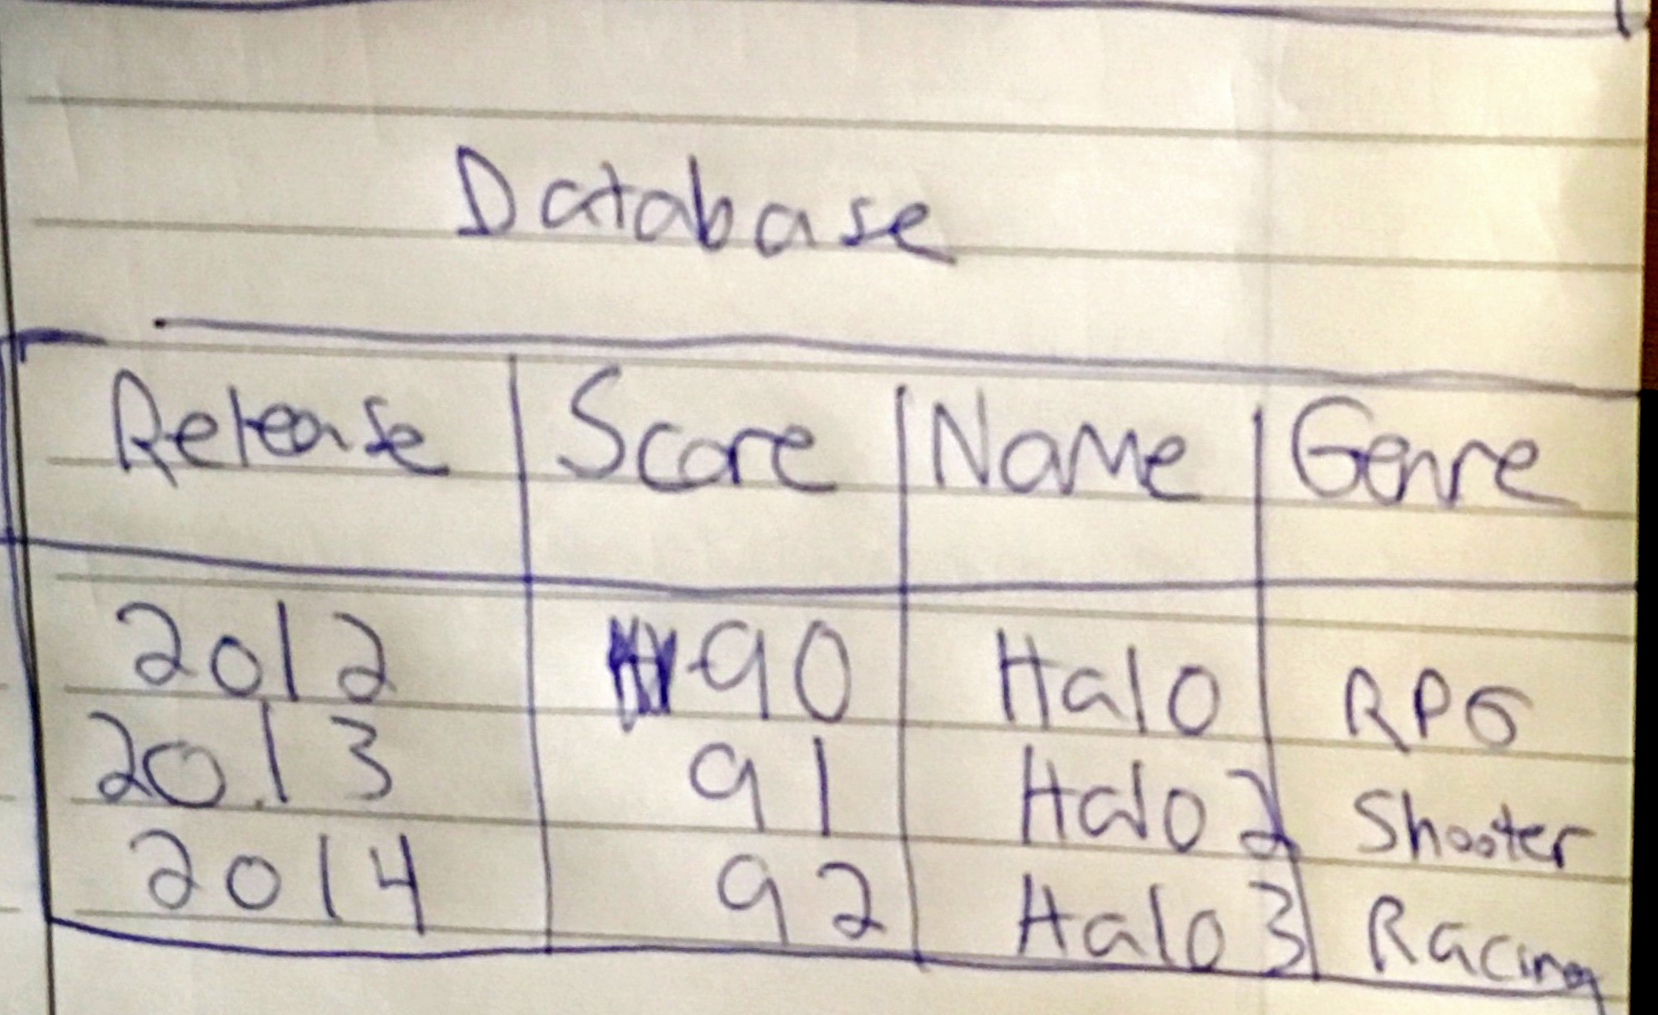 Database
Release Score Name Genre
2012 90 Halo RPG
2013 91 Halo 2 Shooter
2014 92 Halo 3 Racing